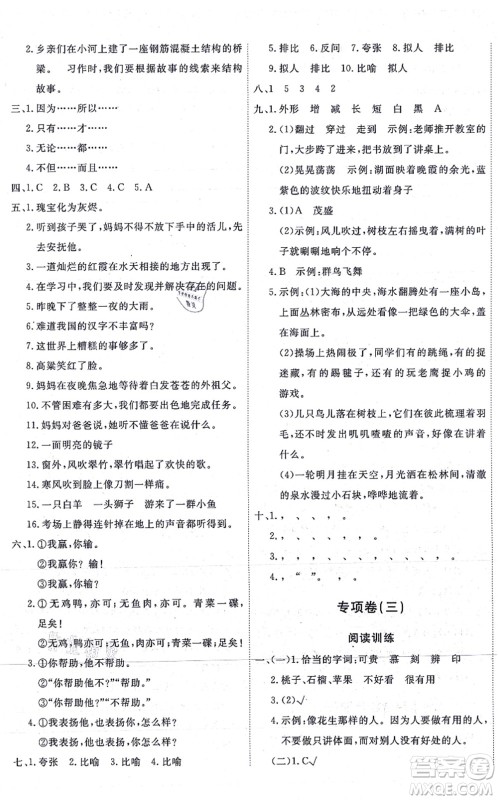 2. 乡亲们在小河上建了一座钢筋混凝土结构的桥
梁。 习作时,我们要根据故事的线索来结构
故事。
三、1. 因为……所以……
2. 只有……才……
3. 无论……都……
4. 不但……而且……
四、1. C 2. B 3. C 4. C 5. A
五、1. 瑰宝化为灰烬。
2. 听到孩子哭了,妈妈不得不放下手中的活。
3. 一道灿烂的红霞在水天相接的地方出现了。
4. 我们应该及时发现并解决存在的问题。
5. 昨晚下了整整一夜的大雨。
6. 难道我国的汉字不是方方正正的吗?
7. 这世界上糟糕的事够多了。
8. 高粱笑红了脸。
9. 妈妈在夜晚焦急地等待着白发苍苍的外祖父。
10. 不管困难有多大,我们都要完成任务。
11. 妈妈对爸爸说,她看不惯爸爸那样做。
12. 一面明亮的镜子
13. 窗外,风吹翠竹,翠竹奏起了欢快的歌。
14. 寒风吹到脸上时,像一把尖刀割一样。
15. 一只白羊 一头狮子 游着一群小鱼
16. 考场上得连针掉在地上的声音都听得见。
六、1. ①我赢,你输。
②我赢?你输!
③我赢你?输!
2. ①无鸡鸭,亦可;无鱼肉,亦可。青菜一碟,
足矣!
②无鸡,鸭亦可;无鱼,肉亦可。青菜一碟,
足矣!
3. ①“你帮助他,他不帮助。”
②“你帮助他?他不帮助。”
③“你帮助,他不帮助?”
4. ①我表扬,你也表扬,你怎么样?
②我表扬你,也表扬你怎么样?
七、1. 夸张 2. 比喻 3. 比喻 4. 比喻
5. 排比 6. 排比 7. 夸张 8. 拟人
9. 拟人 10. 比喻 11. 拟人
八、1 5 3 4 2
九、1. 外形 增 减 长 短 白 黑 A
2. (1)翻过 穿过 走到 示例:老师推开教室的
门,大步跨了进来,直接走到了讲桌上。
(2)晃晃荡荡 示例:湖面映着晚霞的余光,蓝
紫色的波纹快乐地打动着身子
3. (1)A 茂盛
(2)示例:风儿吹过,树枝左右摇曳着,树叶
就唰唰地响个不停。
4. B 示例:群鸟飞舞
5. 示例:(1)大海的中央,海水翻腾处有一座小岛,
上面丛林密布,像一个绿色的大伞盖,盖
在海面上。
(2)操场上热闹极了,同学们有的跳绳,有的
捉迷藏,有的踢毽子,还有的玩老鹰捉小鸡的
游戏。
(3)几只鸟儿落在树枝上,它们彼此梳理着羽
毛,不时发出叽叽喳喳的声音,好像在讨论着
什么。
(4)一轮明月挂在天空,月光洒在松林间,清
澈的泉水漫过小石块,哗哗地流着。
十、1. , 、 、 。
2. , 、 、 。
3. , , , 。
4. , “ ” 。 。
专项卷(三)
阅读训练
一、(一)1. 恰当的字词:可贵 慕 刻 辨 印
2. 桃子、石榴、苹果 不好看 很有用
3. (2)√
4. 示例:像花生那样的人。因为我想做有用
的人,不想做只讲体面,而对别人没有好处
的人。
(二)1. C√